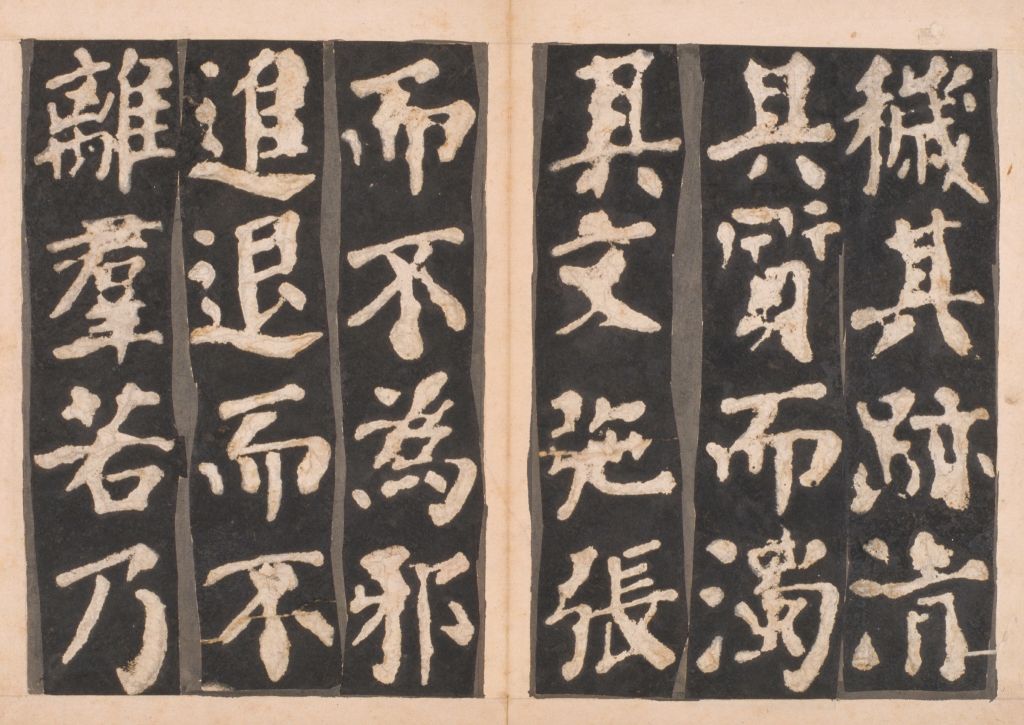 穢其跡清
其質而濁
其文弛張
而不為邪
進退而不
離羣若乃